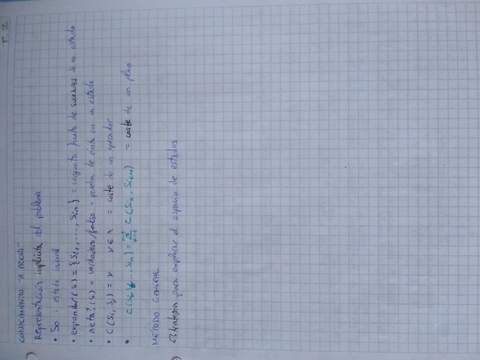 T2
CONOCIMIENTO "A PRIORI"
Representación implícita del problema
• S0 = estado inicial
• expandir(s) = {Si1, ..., Sin} = conjunto finito de sucesores de un estado
• meta?(s) = verdadero/falso = prueba de éxito en un estado
• C(Si, Sj) = v v ∈ ℵ = coste de un operador
• C(Si, ... Sn) = Σ C(Sk, Sk+1) = coste de un plan
MÉTODO GENERAL
) Estrategia para explorar el espacio de estados